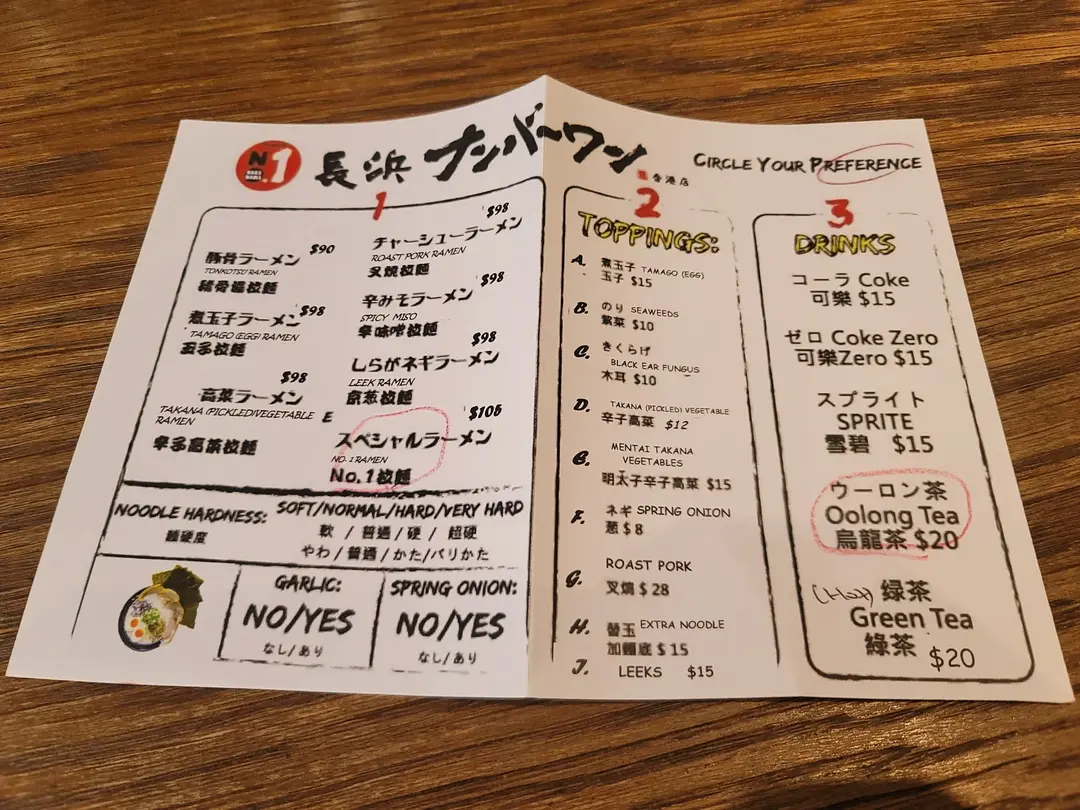 No.1
長浜 ナンバーワン
香港店
CIRCLE YOUR PREFERENCE
1
$90
豚骨ラーメン
TONKOTSU RAMEN
豬骨湯拉麵
$98
煮玉子ラーメン
TAMAGO (EGG) RAMEN
玉子拉麵
$98
高菜ラーメン
TAKANA (PICKLED)VEGETABLE
RAMEN
辛子高菜拉麵
$98
チャーシューラーメン
ROAST PORK RAMEN
叉燒拉麵
$98
辛みそラーメン
SPICY MISO
辛味噌拉麵
$98
しらがネギラーメン
LEEK RAMEN
京葱拉麵
E
$105
スペシャルラーメン
NO. 1 RAMEN
No.1拉麵
NOODLE HARDNESS: SOFT/NORMAL/HARD/VERY HARD
麵硬度 軟 / 普通 / 硬 / 超硬
やわ / 普通 / かた/バリかた
GARLIC:
NO/YES
なし/あり
SPRING ONION:
NO/YES
なし/あり
2
TOPPINGS:
A. 煮玉子 TAMAGO (EGG)
玉子 $15
B. のり SEAWEEDS
紫菜 $10
C. きくらげ
BLACK EAR FUNGUS
木耳 $10
D. TAKANA (PICKLED) VEGETABLE
辛子高菜 $12
E. MENTAI TAKANA
VEGETABLES
明太子辛子高菜 $15
F. ネギ SPRING ONION
葱 $8
G. ROAST PORK
叉燒 $28
H. 替玉 EXTRA NOODLE
加麵底 $15
I. LEEKS $15
3
DRINKS
コーラ Coke
可樂 $15
ゼロ Coke Zero
可樂Zero $15
スプライト
SPRITE
雪碧 $15
ウーロン茶
Oolong Tea
烏龍茶 $20
(Hot) 绿茶
Green Tea
綠茶 $20